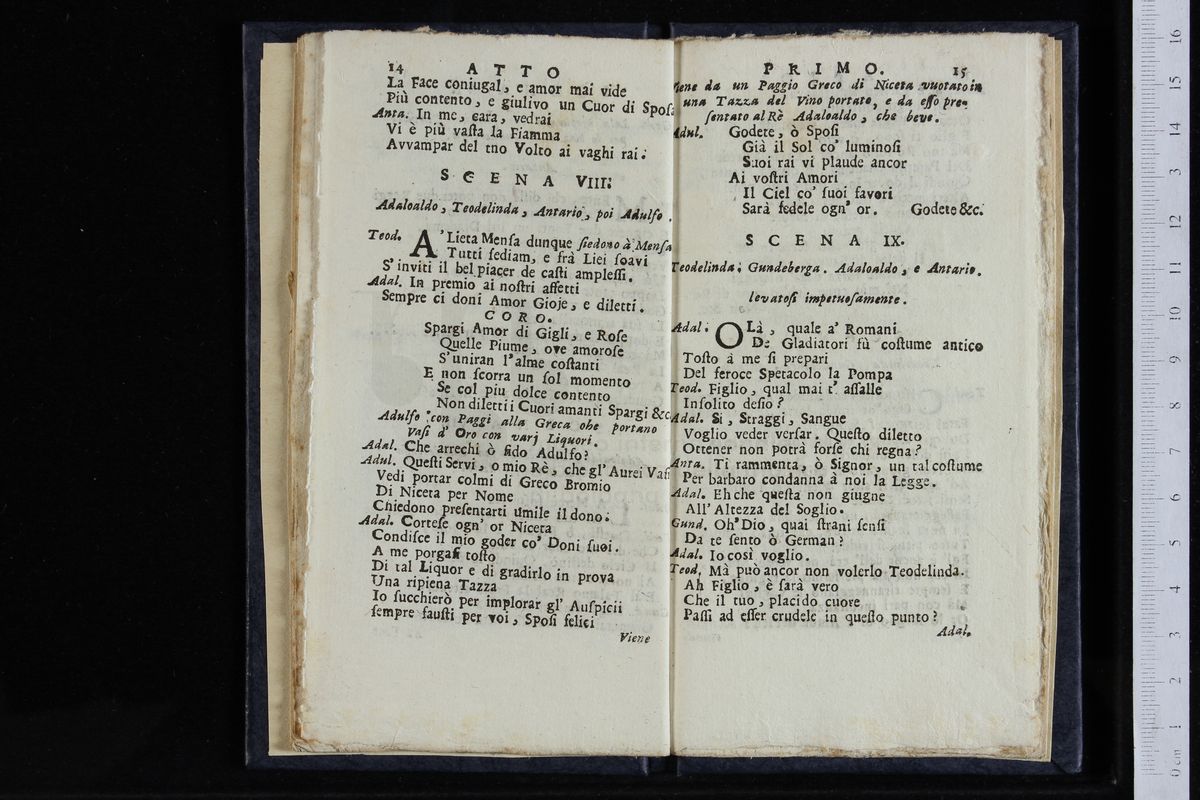 14 ATTO
La Face coniugal, e amor mai vide
Più contento, e giulivo un Cuor di Sposi
Anta. In me, cara, vedrai
Vi è più vasta la Fiamma
Avvampar del tno Volto ai vaghi rai.
SCENA VIII.
Adaloaldo, Teodelinda, Antario, poi Adulfo.
Teod. A' Lieta Mensa dunque siedono à Mensa
Tutti sediam, e frà Liei soavi
S'inviti il bel piacer de casti amplessi.
Adal. In premio ai nostri affetti
Sempre ci doni Amor Gioje, e diletti.
CORO.
Spargi Amor di Gigli, e Rose
Quelle Piume, ove amorose
S'uniran l'alme costanti
E non scorra un sol momento
Se col piu dolce contento
Non diletti i Cuori amanti Spargi &c.
Adulfo con Paggi alla Greca che portano
Vasi d'Oro con varj Liquori.
Adal. Che arrechi ò fido Adulfo?
Adul. Questi Servi, o mio Rè, che gl'Aurei Vasi
Vedi portar colmi di Greco Bromio
Di Niceta per Nome
Chiedono presentarti umile il dono.
Adal. Cortese ogn'or Niceta
Condisce il mio goder co' Doni suoi.
A me porgasi tosto
Di tal Liquor e di gradirlo in prova
Una ripiena Tazza
Io succhierò per implorar gl'Auspicii
sempre fausti per voi, Sposi felici
Viene
PRIMO. 15
Viene da un Paggio Greco di Niceta vuotato in
una Tazza del Vino portato, e da esso pre-
sentato al Rè Adaloaldo, che beve.
Adul. Godete, ò Sposi
Già il Sol co' luminosi
Suoi rai vi plaude ancor
Ai vostri Amori
Il Ciel co' suoi favori
Sarà fedele ogn'or. Godete &c.
SCENA IX.
Teodelinda, Gundeberga. Adaloaldo, e Antario.
levatosi impetuosamente.
Adal. OLà, quale a' Romani
De Gladiatori fù costume antico
Tosto à me si prepari
Del feroce Spetacolo la Pompa
Teod. Figlio, qual mai t'assalle
Insolito desio?
Adal. Si, Straggi, Sangue
Voglio veder versar. Questo diletto
Ottener non potrà forse chi regna?
Anta. Ti rammenta, ò Signor, un tal costume
Per barbaro condanna à noi la Legge.
Adal. Eh che questa non giugne
All'Altezza del Soglio.
Gund. Oh'Dio, quai strani sensi
Da te sento ò German?
Adal. Io così voglio.
Teod. Mà può ancor non volerlo Teodelinda.
Ah Figlio, è sarà vero
Che il tuo, placido cuore
Passi ad esser crudele in questo punto?
Adal.
0 cm 1 2 3 4 5 6 7 8 9 10 11 12 13 14 15 16